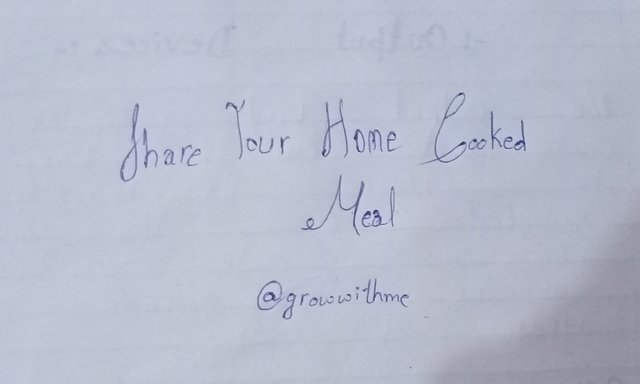 Share Your Home Cooked
Meal
@growwithme